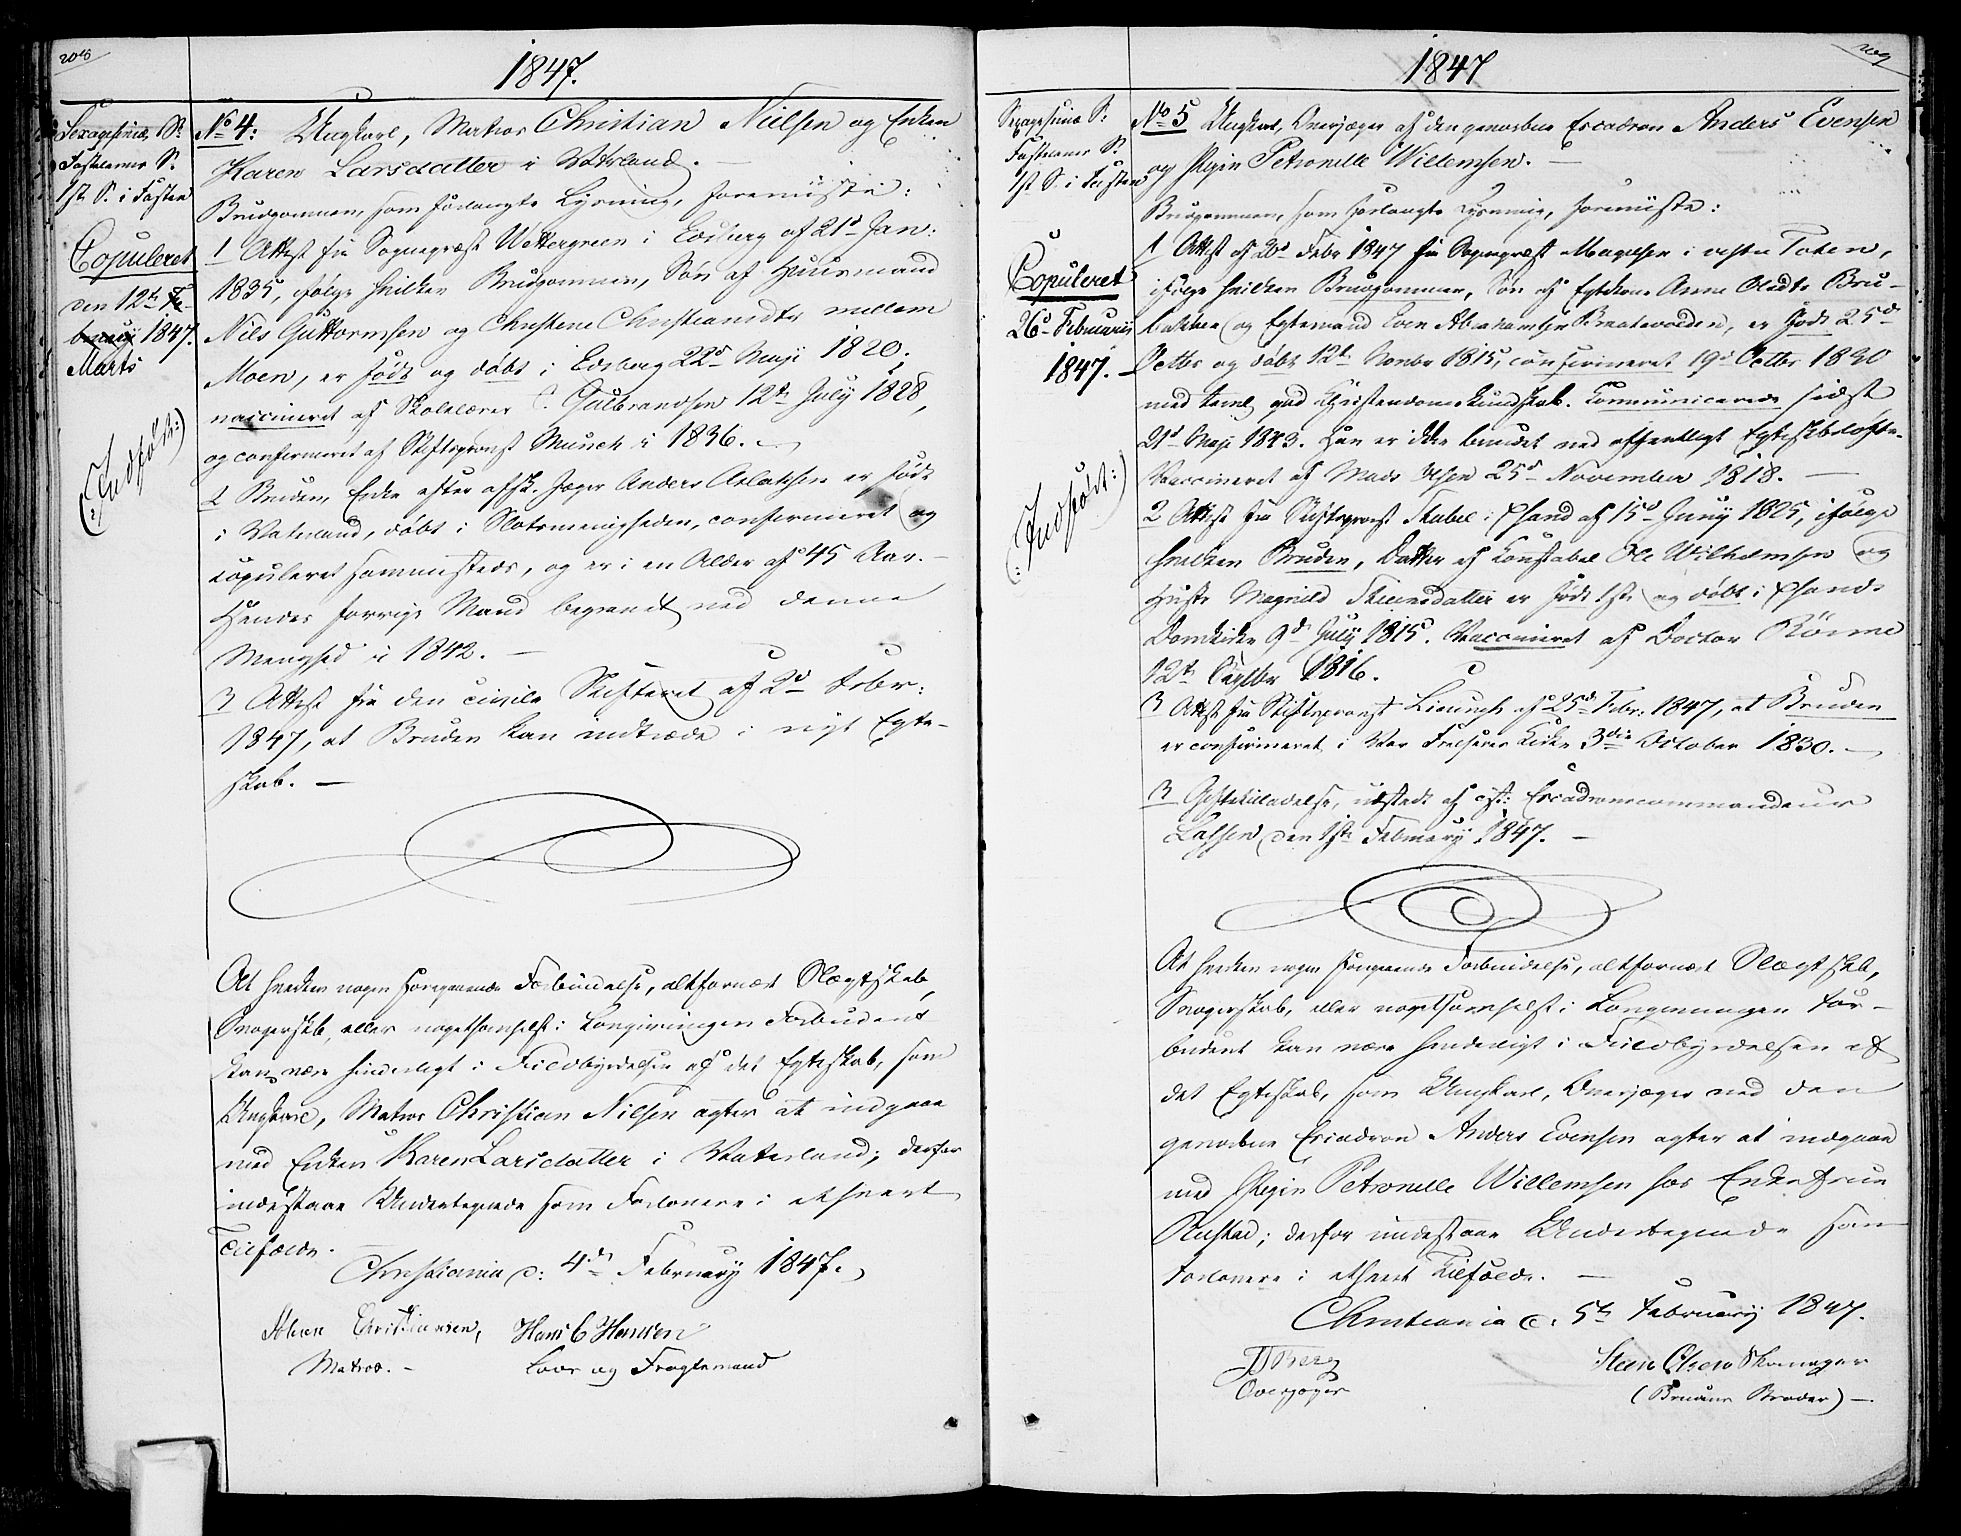 208
1847.
Sexagesimæ S:
Fastelavns S.
1ste S. i Fasten
Copuleret
den 12te Fe-
bruary 1847.
Marts
(: Indført :)
No 4: Ungkarl, Matros Christian Nielsen og Enken
Karen Larsdatter i Vaterland. —
Brudgommen, som forlangte Lysning, foreviiste:
1 Attest fra Sognepræst Wettergreen i Edsberg af 21d Jan:
1835, ifølge hvilken Brudgommen, Søn af Huusmand
Nils Guttormsen og Christene Christiansdtr mellem
Moen, er født og døbt i Edsberg 22d Maji 1820,
vaccineret af Skolelærer Gulbrandsen 12te July 1828,
og confirmeret af Stiftsprovst Munch i 1836. —
2 Bruden, Enke efter afsk. Jæger Anders Aslaksen er født
i Vaterland, døbt i Slotsmenigheden, confirmeret og
copuleret sammesteds, og er i en Alder af 45 Aar. —
Hendes forrige Mand begravet ved denne
Menighed i 1842. —
3 Attest fra den civile Skifteret af 2d Febr:
1847, at Bruden kan indtræde i nyt Egte-
skab. —
At hverken nogen foregaaende Forbindelse, altfornært Slægtskab,
Svogerskab, eller nogetsomhelst i Lovgivningen Forbudent
kan være hinderligt i Fuldbyrdelsen af det Egteskab, som
Ungkarl, Matros Christian Nilsen agter at indgaae
med Enken Karen Larsdatter i Vaterland; derfor
indestaae Undertegnede som Forlovere i ethvert
Tilfælde. —
Christiania d: 4de February 1847.
Christiansen, Hans C Hansen
Matros. — Loos og Fragtemand
209
1847
Sexagesimæ S:
Fastelavns S.
1ste S. i Fasten
Copuleret
26d February
1847. —
(: Indført :)
No 5 Ungkarl, Overjæger af den gevorbne Escadron Anders Evensen
og Pigen Petronelle Willemsen. —
Brudgommen, som forlangte Lysning, foreviiste:
1 Attest af 20d Febr 1847 fra Sognepræst Magelsen i vestre Toten,
ifølge hvilken Brudgommen, Søn af Egtekone Anne Olsdtr Bru-
bakken og Egtemand Even Abrahamsen Braatevolden, er født 25d
Octbr og døbt 12te Novbr 1815, confirmeret 19d Octbr 1830
med temlig god Christendomskundskab. Communicerede sidst
21d Maji 1843. Han er ikke bundet ved offentligt Egteskabsløfte.
Vaccineret af Mads Olsen 25d November 1818. —
2 Attest fra Stiftsprovst Stabel i Chsand af 15d Juny 1825, ifølge
hvilken Bruden, Datter af Constabel Ole Wilhelmsen og
Hustr Magnild Steensdatter er født 1ste og døbt i Chsands
Domkirke 9de July 1815. Vaccineret af Doctor Rönne
12te Septbr 1816.
3 Attest fra Stiftsprovst af 25d Febr: 1847, at Bruden
er confirmeret i Vor Frelsers Kirke 3die October 1830. —
3 Giftetilladelse, udstedt af cst: Escadronscommandeur
Lassen den 1ste February 1847. —
At hverken nogen foregaaende Forbindelse, altfornært Slægtskab,
Svogerskab, eller nogetsomhelst i Lovgivningen For-
budent kan være hinderligt i Fuldbyrdelsen af
det Egteskab, som Ungkarl, Overjæger ved den
gevorbne Escadron Anders Evensen agter at indgaae
med Pigen Petronelle Willemsen hos Enkefrue
Rustad; derfor indestaae Undertegnede som
Forlovere i ethvert Tilfælde. —
Christiania d: 5te February 1847.
Berg Steen Olsen
Overjæger (Brudens Broder) —